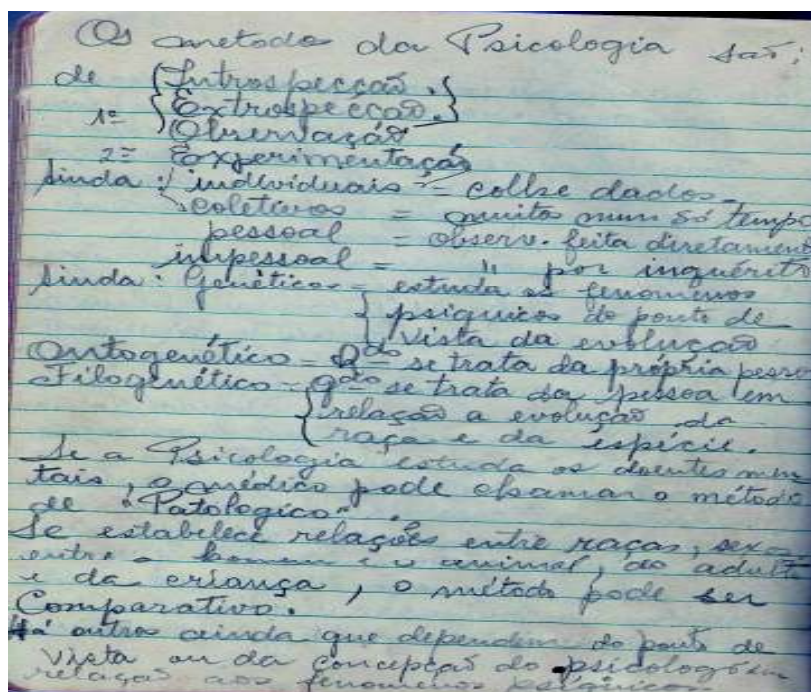 Os metodos da Psicologia são:
de { Introspecção. }
1º { Extrospecção. }
Observação
2º Experimentação
Ainda: individuais = colhe dados
coletivos = muitos num só tempo
pessoal = observ. feita diretamen
impessoal = " por inquérito
Ainda: Genético = estuda os fenomenos
{ psiquicos do ponto de
vista da evolução
Ontogenético = Qdo se trata da própria pesso
Filogenético = qdo se trata da pessoa em
{ relação a evolução da
raça e da espécie.
Se a Psicologia estuda os doentes men
tais, o médico pode chamar o método
de "Patologico".
Se estabelece relações entre raças, sexo
entre o homem e o animal, do adulto
e da criança, o método pode ser
Comparativo.
Há outros ainda que dependem do ponto de
vista ou da concepção do psicologo em
relação aos fenomenos